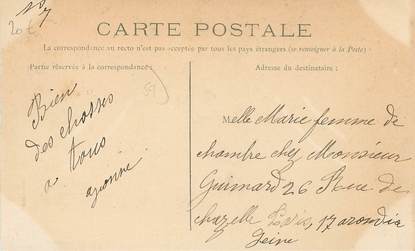 20 €
CARTE POSTALE
La correspondance au recto n'est pas acceptée par tous les pays étrangers (se renseigner à la Poste)
Partie réservée à la correspondance:
Adresse du destinataire:
Bien
des choses
a tous
M elle Marie femme de
chambre chez Monsieur
Guimard 26 Rue de
chazelle 17 arondis
Seine